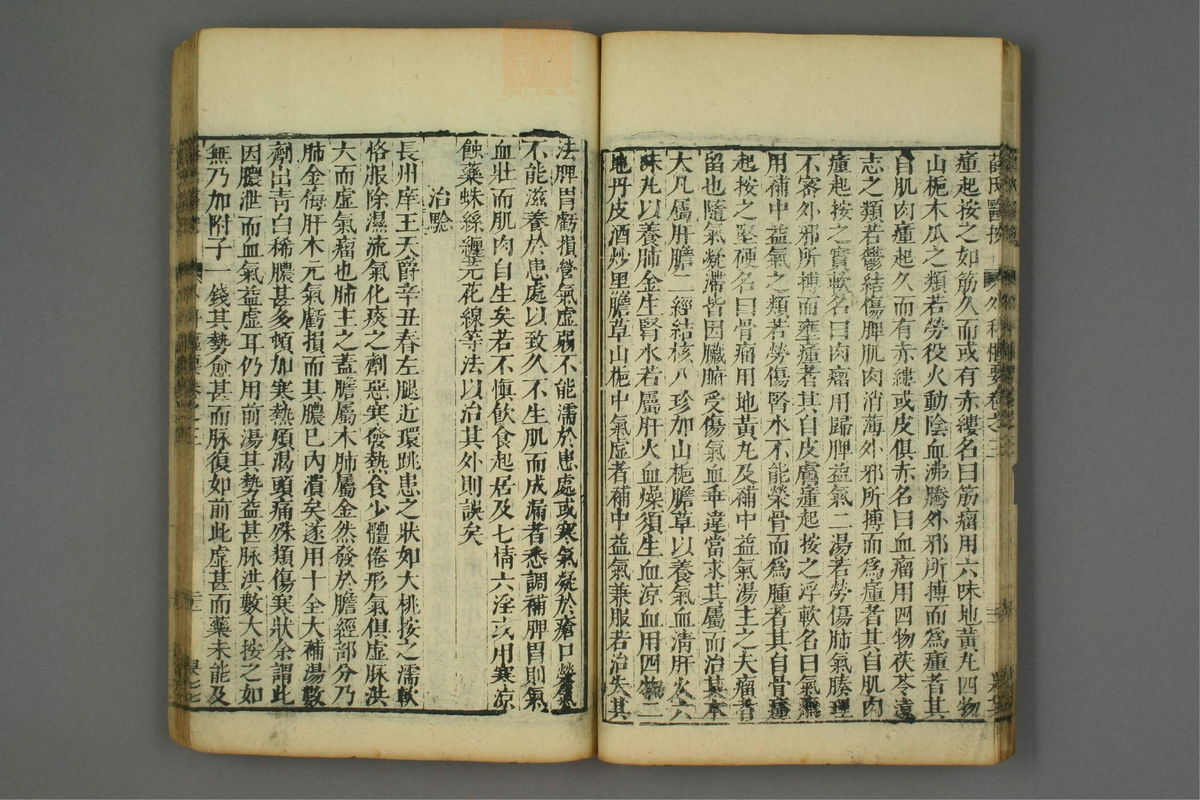 薛氏醫按 外科樞要卷之三
瘇起按之如筋久而或有赤縷名曰筋瘤用六味地黃丸四物
山梔木瓜之類若勞役火動陰血沸騰外邪所搏而爲瘇者其
自肌肉瘇起久而有赤縷或皮俱赤名曰血瘤用四物茯苓遠
志之類若鬱結傷脾肌肉消薄外邪所搏而爲瘇者其自肌肉
瘇起按之實軟名曰肉瘤用歸脾益氣二湯若勞傷肺氣腠理
不密外邪所搏而壅瘇者其自皮膚瘇起按之浮軟名曰氣瘤
用補中益氣之類若勞傷腎水不能榮骨而爲腫者其自骨瘇
起按之堅硬名曰骨瘤用地黃丸及補中益氣湯主之夫瘤者
留也隨氣凝滯皆因臟腑受傷氣血乖違當求其屬而治其本
大凡屬肝膽二經結核八珍加山梔膽草以養氣血清肝火六
味丸以養肺金生腎水若屬肝火血燥須生血涼血用四物二
地丹皮酒炒黑膽草山梔中氣虛者補中益氣兼服若治失其
法脾胃虧損營氣虛弱不能濡於患處或寒氣凝於瘡口榮氣
不能滋養於患處以致久不生肌而成漏者悉調補脾胃則氣
血壯而肌肉自生矣若不愼飲食起居及七情六淫或用寒涼
蝕藥蛛絲纏芫花線等法以治其外則誤矣
治驗
長州庠王天爵辛丑春左腿近環跳患之狀如大桃按之濡軟
恪服除濕流氣化痰之劑惡寒發熱食少體倦形氣俱虛脉洪
大而虛氣瘤也肺主之蓋膽屬木肺屬金然發於膽經部分乃
肺金侮肝木元氣虧損而其膿已內潰矣遂用十全大補湯數
劑出靑白稀膿甚多頓加寒熱煩渴頭痛殊類傷寒狀余謂此
因膿泄而血氣益虛耳仍用前湯其勢益甚脉洪數大按之如
無乃加附子一錢其勢愈甚而脉復如前此虛甚而藥未能及